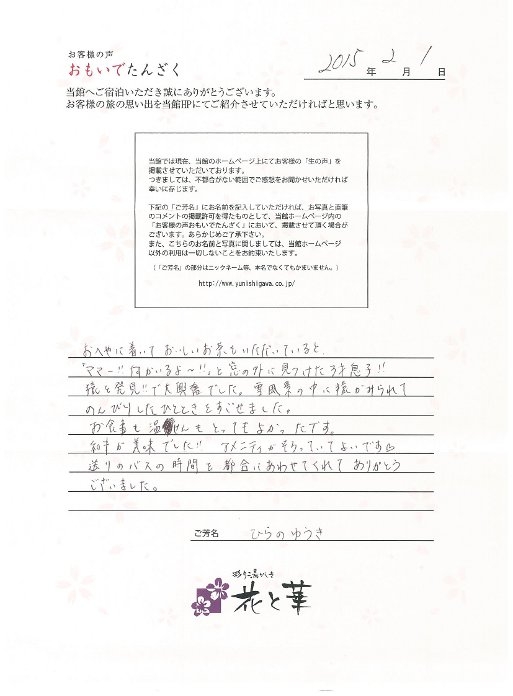 お客様の声
おもいでたんざく
2015年 2月 1日
当館へご宿泊いただき誠にありがとうございます。
お客様の旅の思い出を当館HPにてご紹介させていただければと思います。
当館では現在、当館のホームページ上にてお客様の「生の声」を
掲載させていただいております。
つきましては、不都合がない範囲でご感想をお聞かせいただければ
幸いに存じます。
下記の「ご芳名」にお名前を記入していただければ、お写真と直筆
のコメントの掲載許可を得たものとして、当館ホームページ内の
「お客様の声おもいでたんざく」において、掲載させて頂く場合が
ございます。あらかじめご了承下さい。
また、こちらのお名前と写真に関しましては、当館ホームページ
以外の利用は一切しないことをお約束いたします。
(「ご芳名」の部分はニックネーム等、本名でなくてもかまいません。)
http://www.yunishigawa.co.jp/
おへやに着いて おいしいお茶をいただいていると、
"ママー!!何かいるよ〜!!"と窓の外に見つけた3才息子!!
猿を発見!!で大興奮でした。雪風景の中に猿がみられて
のんびりしたひとときをすごせました。
お食事も温せんもとってもよかったです。
和牛が美味でした!! アメニティがそろっていてよいです
送りのバスの時間を都合にあわせてくれて ありがとう
ございました。
ご芳名 ひらのゆうき
花と華